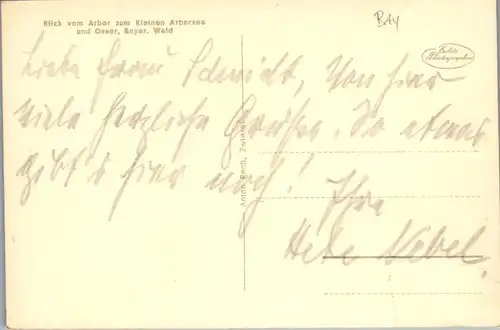 Blick vom Arber zum Kleinen Arbersee
und Osser, Bayer. Wald
BAY
Echte
Photographie
Liebe Frau Schmidt, Von hier
viele herzliche Grüße. So etwas
gibt's hier noch!
Ihre
Hede Nebel.
Anton Pech, Zwiesel